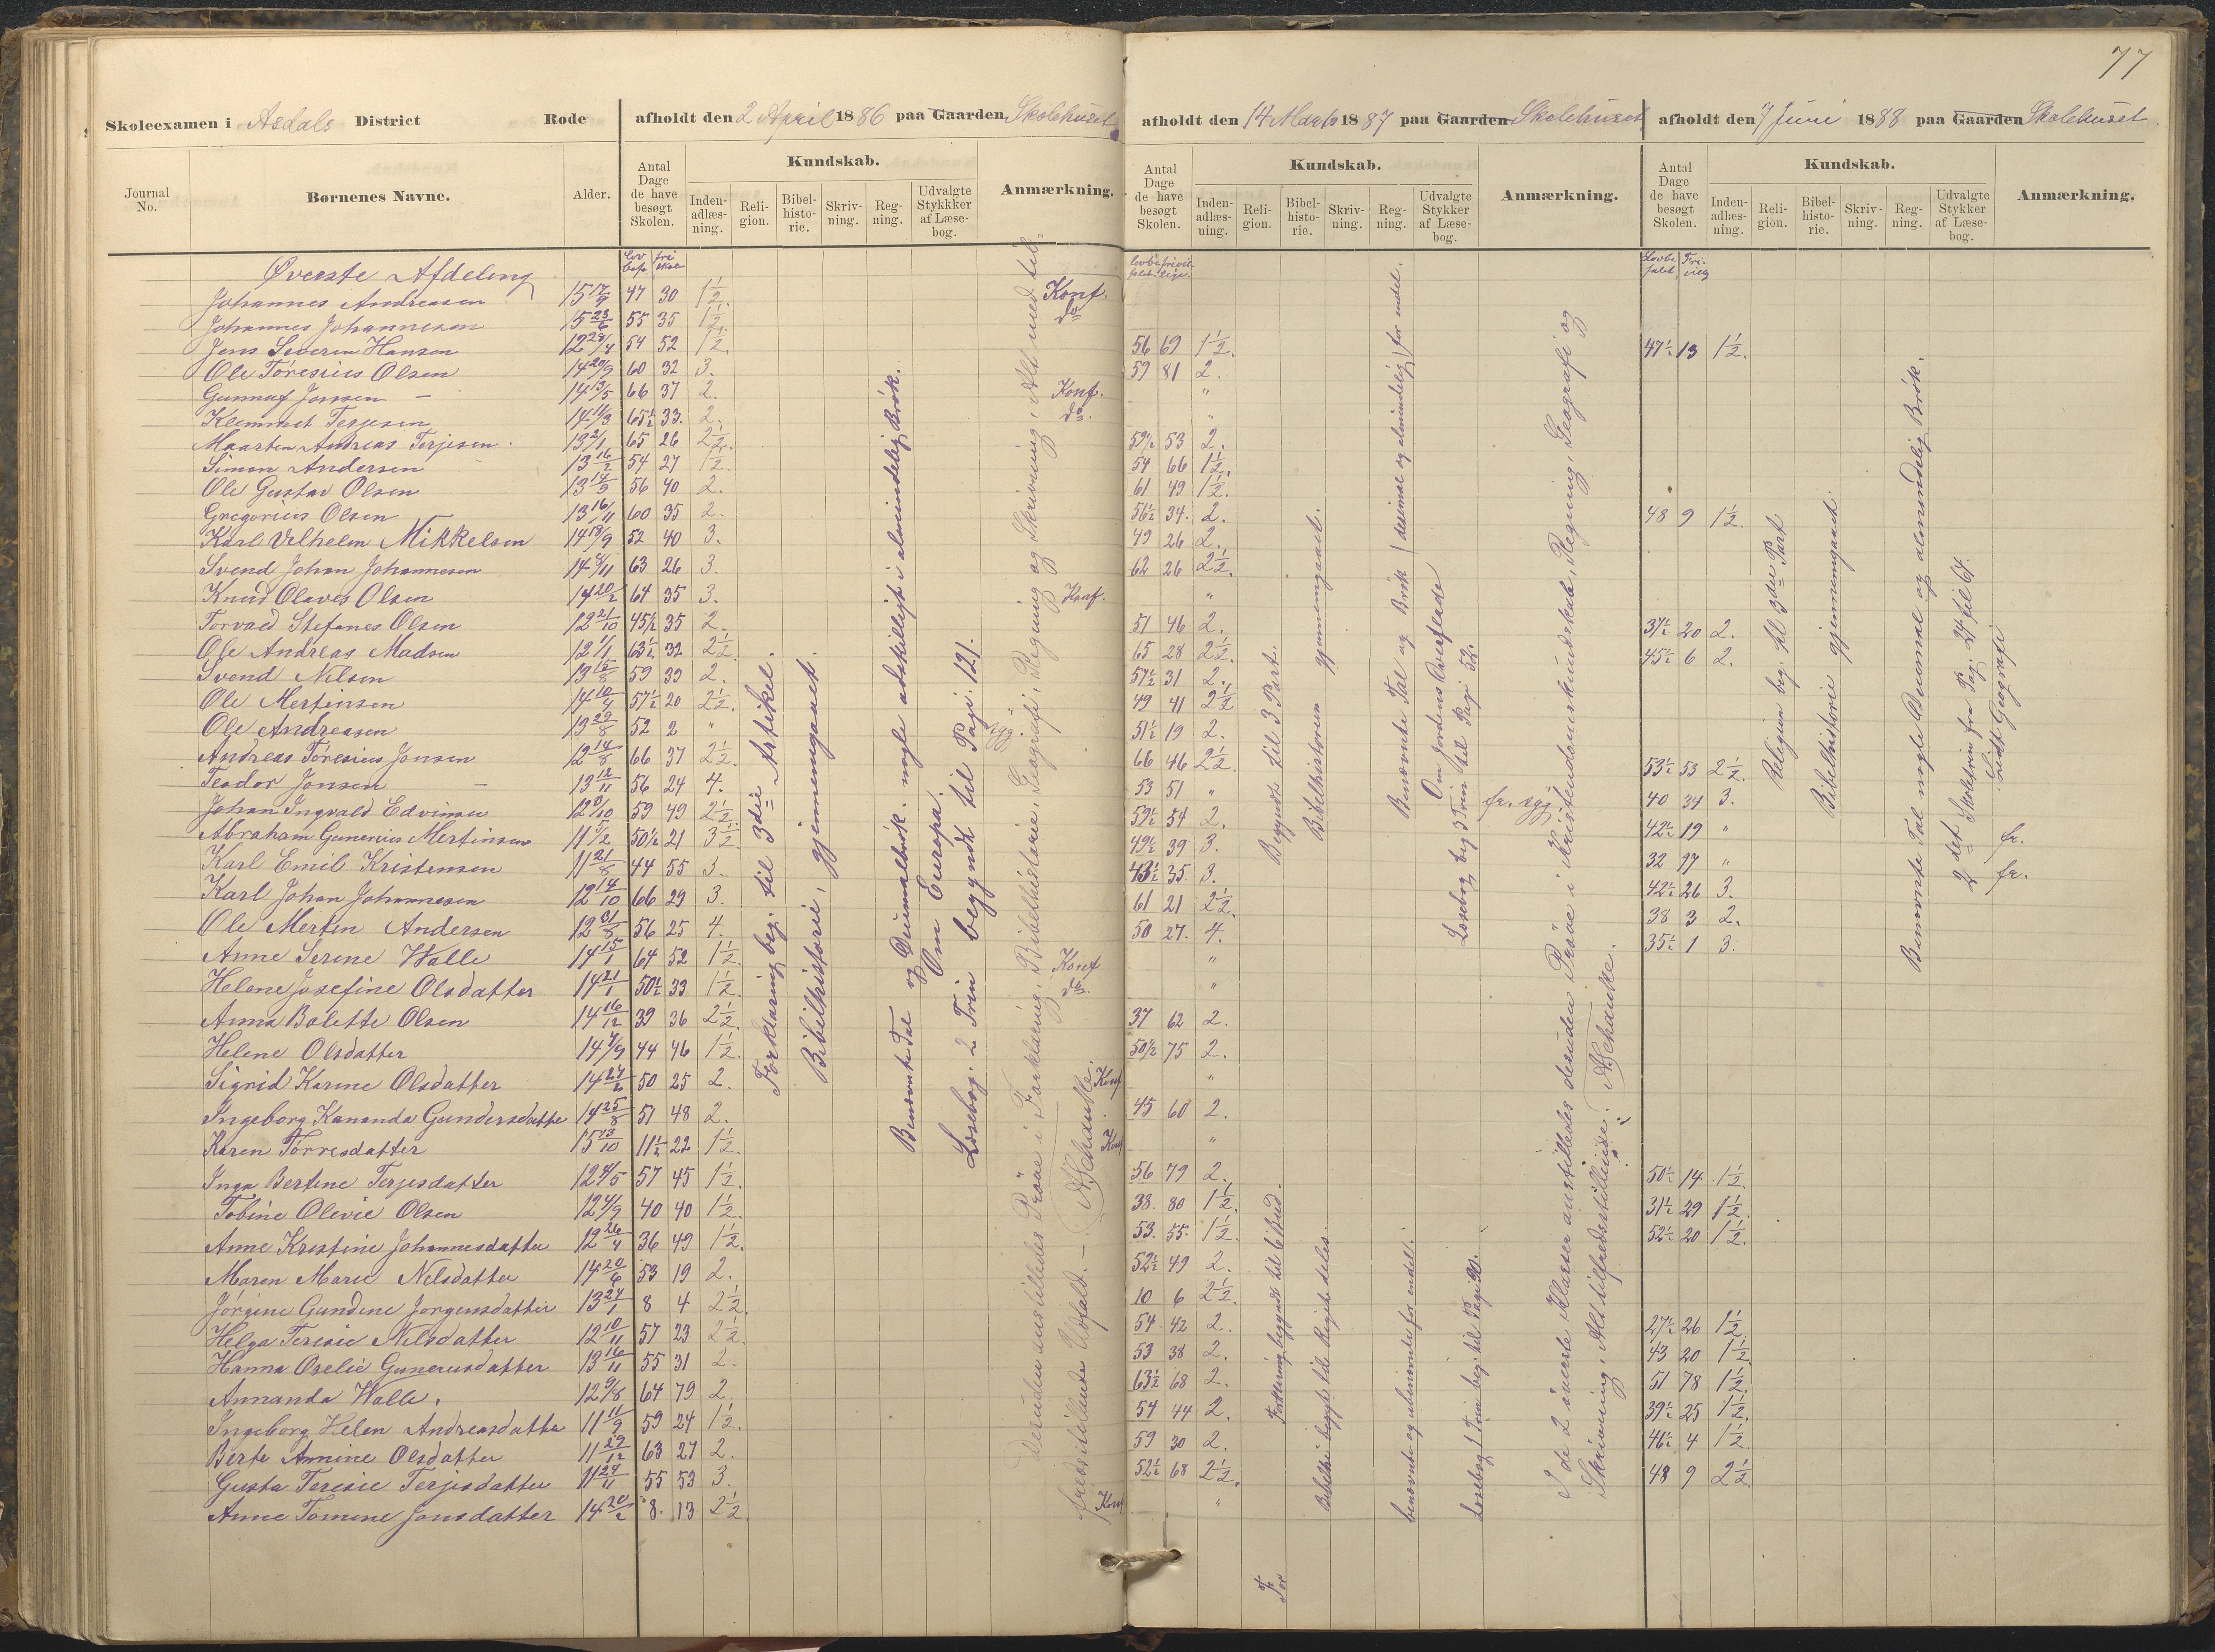 77
Skoleexamen i Asdals District Rode afholdt den 2 April 1886 paa Gaarden Skolehuset
afholdt den 14 Marts 1887 paa Gaarden Skolehuset
afholdt den 7 Juni 1888 paa Gaarden Skolehuset.
Journal No. Børnenes Navne. Alder. Antal Dage de have besøgt Skolen. Kundskab. Inden-adlæs-ning. Reli-gion. Bibel-histo-rie. Skriv-ning. Reg-ning. Udvalgte Stykkker af Læse-bog. Anmærkning.
Antal Dage de have besøgt Skolen. Kundskab. Inden-adlæs-ning. Reli-gion. Bibel-histo-rie. Skriv-ning. Reg-ning. Udvalgte Stykker af Læse-bog. Anmærkning.
Antal Dage de have besøgt Skolen. Kundskab. Inden-adlæs-ning. Reli-gion. Bibel-histo-rie. Skriv-ning. Reg-ning. Udvalgte Stykker af Læse-bog. Anmærkning.
Øverste Afdeling
Johannes Andreasen 15 17/9 47 30 1½. Konf.
Johannes Johannesen 15 23/6 55 35 1½. do
Jens Severin Hansen 12 28/4 54 52 1½. 56 69 1½. 47½ 13 1½.
Ole Töresius Olsen 14 20/9 60 32 3. 59 81 2.
Gunnuf Jonsen 14 13/5 66 37 2. Konf. "
Klemmet Terjesen 14 11/3 65½ 33. 2. do. "
Maarten Andreas Terjesen 13 2/1 65 26 2½. 59½ 53 2.
Simon Andersen 13 16/2 54 27 1½. 54 66 1½.
Ole Gustav Olsen 13 14/9 56 40 2. 61 49 1½.
Gregorius Olsen 13 16/11 60 35 2. 56½ 34. 2. 48 9 1½.
Karl Vilhelm Mikkelsen 14 18/9 52 40 3. 49 26 2.
Svend Johan Johannesen 14 8/11 63 26 3. 62 26 2½.
Knud Olaves Olsen 14 20/2 64 35 3. Konf. "
Torvald Stefanes Olsen 12 21/10 45½ 35 2. 51 46 2. 37½ 20 2.
Ole Andreas Madsen 12 1/1 63½ 32 2½ 65 28 2½. 45½ 6 2.
Svend Nilsen 13 15/8 59 39 2. 57½ 31 2.
Ole Mertinsen 14 10/4 57½ 20 2½. 49 41 2½
Ole Andreasen 13 29/8 52 2 " syg. 51½ 19 2.
Andreas Töresius Jonsen 12 14/8 66 37 2½. 66 46 2½. 53½ 53 2½.
Teodor Jonsen 13 12/11 56 24 4. 53 51 " fr. syg 40 34 3.
Johan Ingvald Edvinsen 59 49 2½ 59½ 54 2. 42½ 19 " fr.
Abraham Gunerius Mertinsen 50½ 21 3½ 49½ 39 3. 32 "  fr.
Karl Emil Kristensen 11 21/8 44 55 3. 43½ 35. 3. 42½ 26 3.
Karl Johan Johannesen 12 14/10 66 29 3. 61 21 2½. 38 3 2.
Ole Mertin Andersen 12 31/8 56 25 4. 50 27. 4. 35½ 1 3.
Anne Serine Walle 14 15/1 64 52 1½ Konf "
Helene Josefine Olsdatter 14 21/1 50½ 33 1½. do. "
Anna Bolette Olsen 14 16/12 39 36 2½ 37 62 2.
Helene Olsdatter 14 7/9 44 46 1½. 50½ 75 2.
Sigrid Karine Olsdatter 50 25 2. Konf "
Ingeborg Kananda Gundersdatte 14 25/8 51 48 2. 45 60 2.
Karen Tørresdatter 15 13/10 11½ 22 1½. Konf "
Inga Bertine Terjesdatter 57 45 1½. 56 79 2. 50½ 14. 1½.
Tobine Olevie Olsen 40 40 1½. 38. 80 1½. 31½ 29 1½.
Anne Kristine Johannesdatter 12 26/4 36 49 1½. 53. 55. 1½. 52½ 20 1½.
Maren Marie Nilsdatter 14 20/6 53 19 2. 52½ 49 2.
Jörgine Gundine Jorgensdatter 13 24/1 8 4 2½. 10 6 2½.
Helga Teresie Nilsdatter 12 10/11 57 23 2½. 54 42 2. 27½ 26 1½.
Hanna Oselie Gunerusdatter 13 16/11 55 31 2. 53 38 2. 43 20 1½
Annanda Walle. 12 9/8 64 79 2. 63½ 68 2. 51 78 1½.
Ingeborg Helen Andreasdatter 11 11/9 59 24 1½. 54 44 2. 39½ 25 1½.
Berte Amine Olsdatter 11 29/12 63 27 2. 59 30 2. 46½ 4 1½.
Gusta Teresie Terjesdatter 11 24/11 55 53 3. 52½ 68 2½. 48 9 2½
Anne Tomine Jonsdatter 14 20/2 8. 13 2½. Konf "
Forklaring beg. til 3die Artikel.
Bibelhistorie, gjennemgaaet.
Benævnte Tal og Decimalbrøk. nogle adskilligt i almindelig Brøk.
Om Europa.
Læsebog. 2 Trin begyndt til Pagi. 121.
Desuden anstilledes Prøve i Forklaring, Bibelhistorie, Geografi, Regning og Skrivning, Alt med til-
fredsstillende Udfald. – ASchanke.
Begyndt til 3 Part.
Bibelhistorien gjennemgaaet.
Benævnte Tal og Brøk (decimal og almindelig) for endel.
Om Jordens Overflade
Læsebog beg 3 Trin til Pagi 52.
For
Forklaring begyndt til 6 Bud.
Bibelhi. begynt til Rigets deles.
benævnte og ubenævnte for endel.
Læsebog 1 Trin beg. til Pagi 90.
I de 2 øverste Klasser anstilledes desuden Prøve i Kristendomskundskab, Regning, Geografi og
Skrivning, Alt tilfredsstillende. ASchanke.
Religion beg. til 3die Part
Bibelhistorie gjennemgaaet.
Benævnte Tal nogle Decimal og almindelig Brøk.
2det Skoletrin fra Pag. 24 til 64.
Lidt Geografi